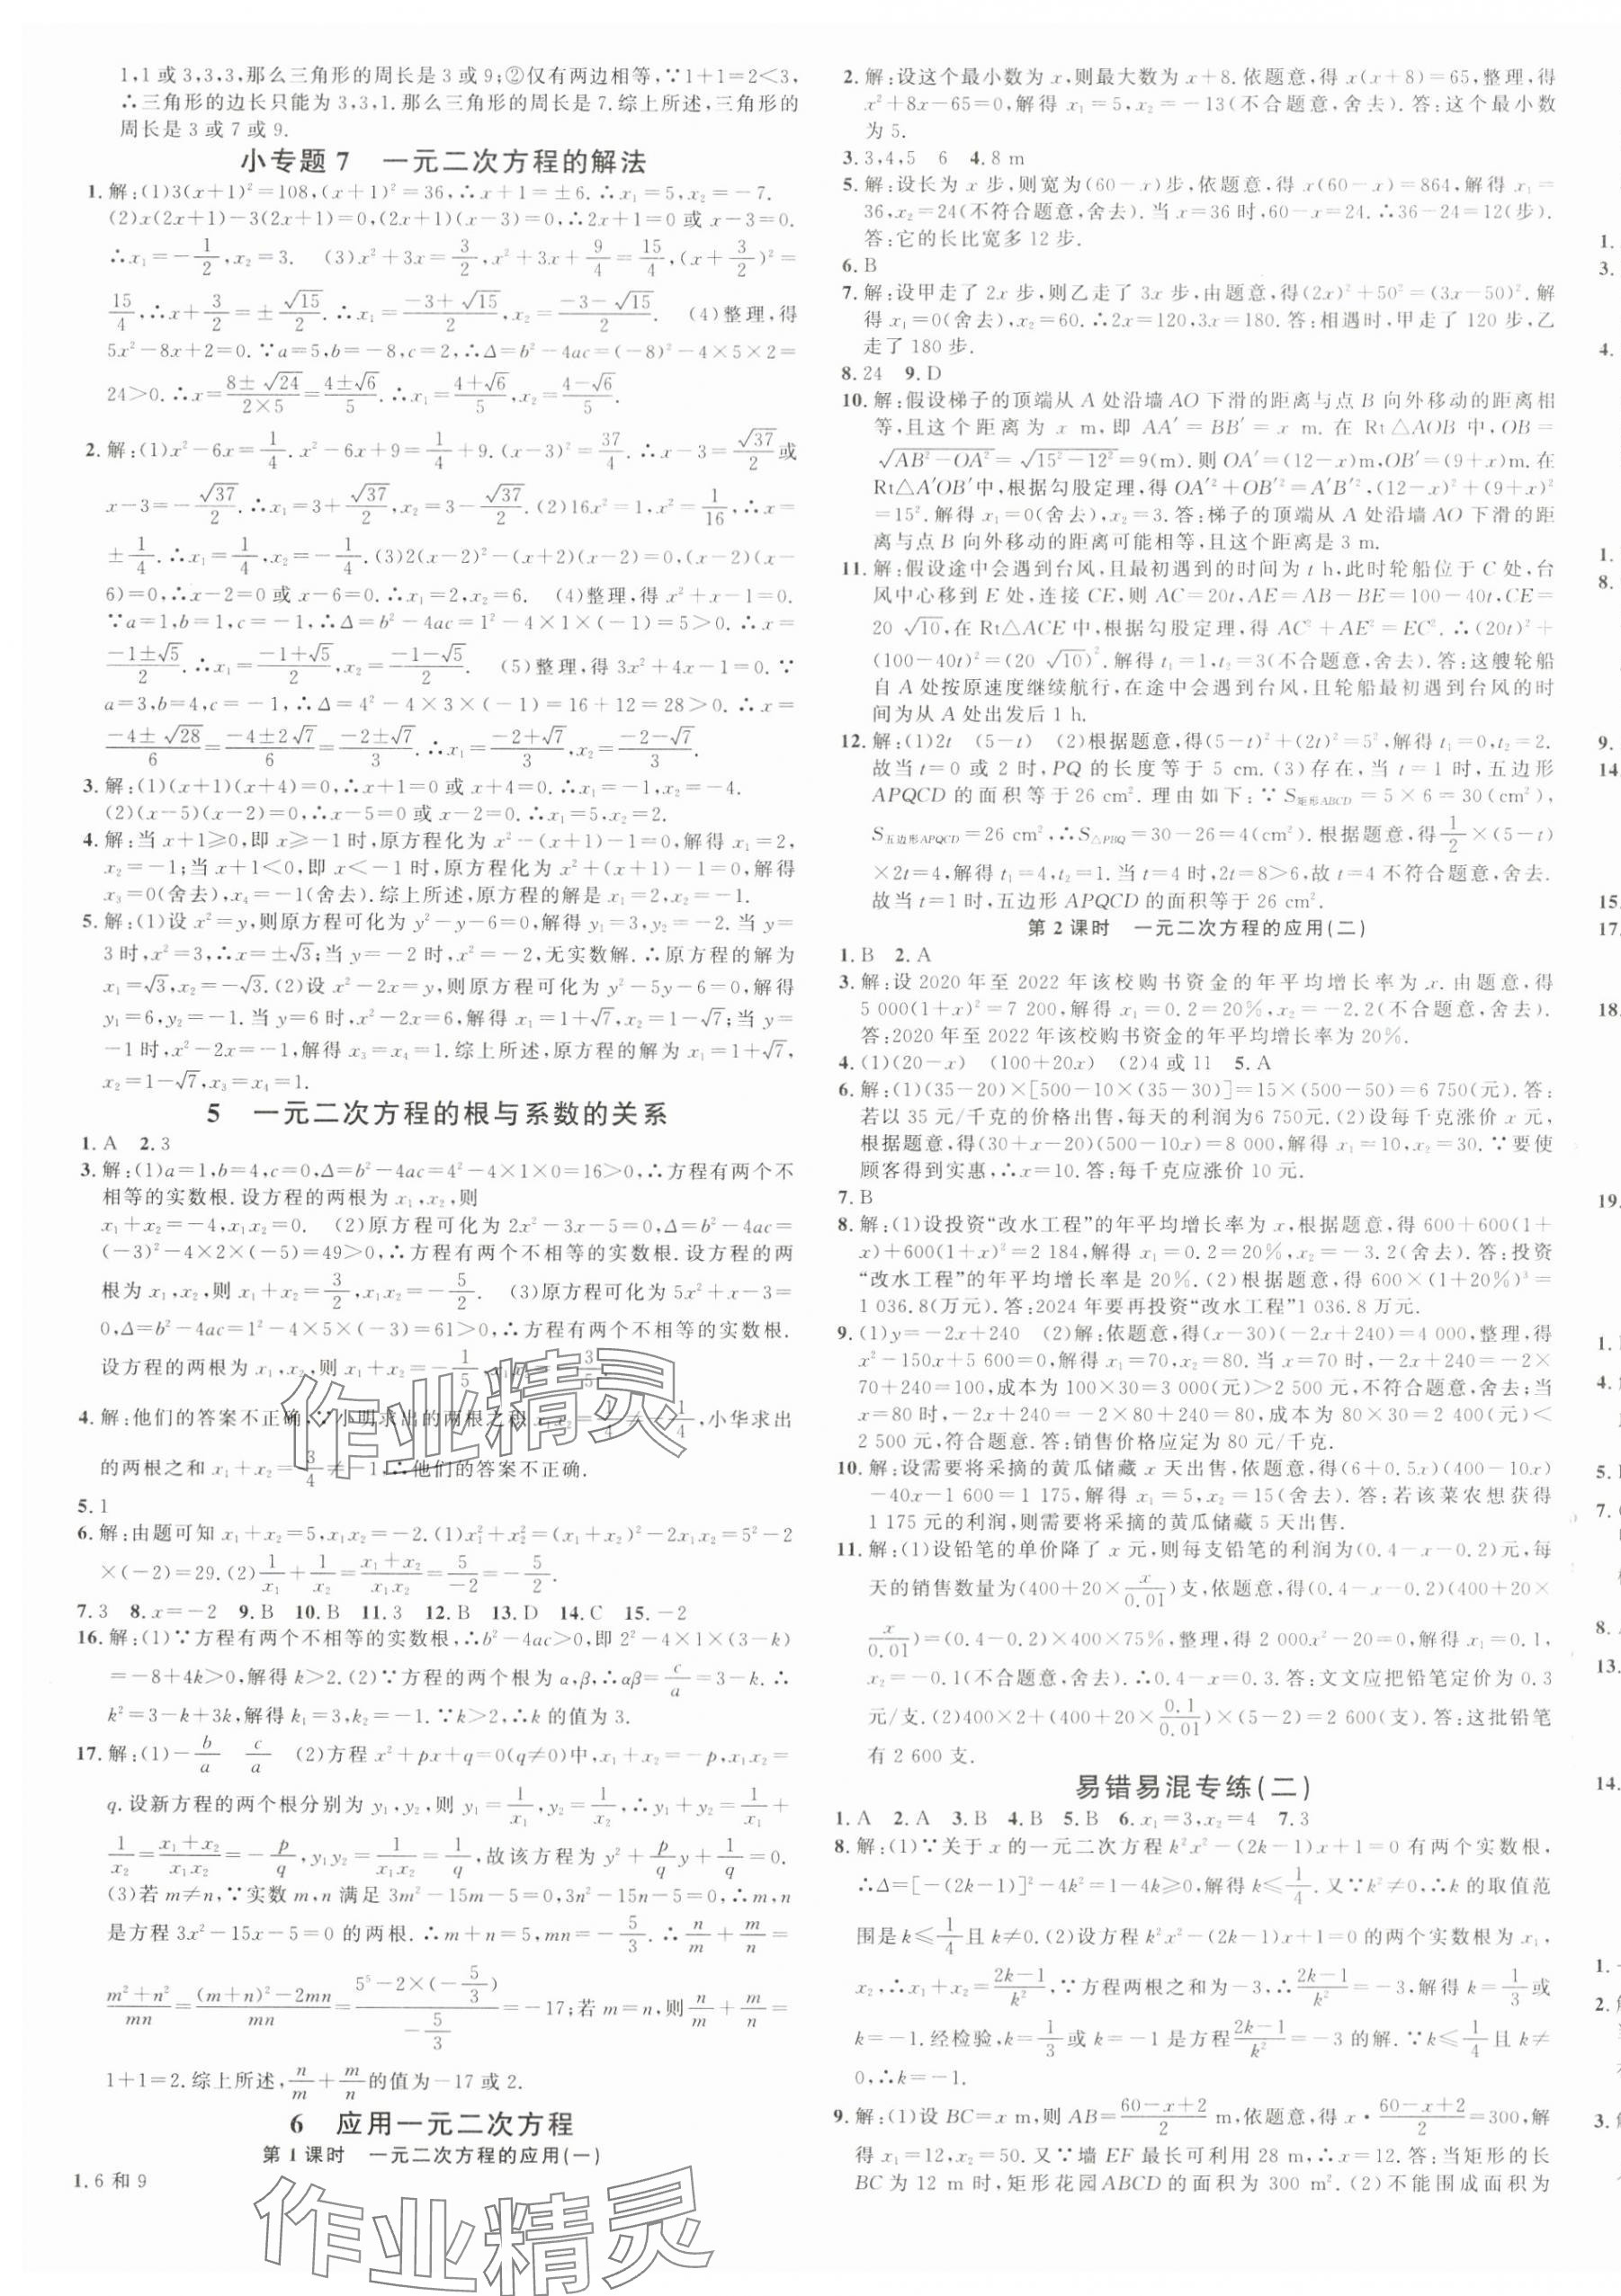 1,1或3,3,3,那么三角形的周长是3或9;②仅有两边相等,∵1+1=2<3,
∴三角形的边长只能为3,3,1.那么三角形的周长是7.综上所述,三角形的
周长是3或7或9.
小专题7 一元二次方程的解法
1.解:(1)3(x+1)²=108,(x+1)²=36,∴x+1=±6.∴x₁=5,x₂=-7.
(2)x(2x+1)-3(2x+1)=0,(2x+1)(x-3)=0,∴2x+1=0或x-3=0.
∴x₁=-1/2,x₂=3. (3)x²+3x=3/2,x²+3x+9/4=15/4,(x+3/2)²=
15/4,∴x+3/2=±√15/2.∴x₁=(-3+√15)/2,x₂=(-3-√15)/2. (4)整理,得
5x²-8x+2=0.∵a=5,b=-8,c=2,∴Δ=b²-4ac=(-8)²-4×5×2=
24>0.∴x=(8±√24)/(2×5)=(4±√6)/5.∴x₁=(4+√6)/5,x₂=(4-√6)/5.
2.解:(1)x²-6x=1/4.x²-6x+9=1/4+9.(x-3)²=37/4.∴x-3=√37/2或
x-3=-√37/2.∴x₁=3+√37/2,x₂=3-√37/2.(2)16x²=1,x²=1/16,∴x=
±1/4.∴x₁=1/4,x₂=-1/4.(3)2(x-2)²-(x+2)(x-2)=0,(x-2)(x-
6)=0,∴x-2=0或x-6=0.∴x₁=2,x₂=6. (4)整理,得x²+x-1=0.
∵a=1,b=1,c=-1,∴Δ=b²-4ac=1²-4×1×(-1)=5>0.∴x=
(-1±√5)/2.∴x₁=(-1+√5)/2,x₂=(-1-√5)/2. (5)整理,得3x²+4x-1=0.∵
a=3,b=4,c=-1,∴Δ=4²-4×3×(-1)=16+12=28>0.∴x=
(-4±√28)/6=(-4±2√7)/6=(-2±√7)/3.∴x₁=(-2+√7)/3,x₂=(-2-√7)/3.
3.解:(1)(x+1)(x+4)=0,∴x+1=0或x+4=0.∴x₁=-1,x₂=-4.
(2)(x-5)(x-2)=0,∴x-5=0或x-2=0.∴x₁=5,x₂=2.
4.解:当x+1≥0,即x≥-1时,原方程化为x²-(x+1)-1=0,解得x₁=2,
x₂=-1;当x+1<0,即x<-1时,原方程化为x²+(x+1)-1=0,解得
x₃=0(舍去),x₄=-1(舍去).综上所述,原方程的解是x₁=2,x₂=-1.
5.解:(1)设x²=y,则原方程可化为y²-y-6=0,解得y₁=3,y₂=-2.当y=
3时,x²=3,∴x=±√3;当y=-2时,x²=-2,无实数解.∴原方程的解为
x₁=√3,x₂=-√3.(2)设x²-2x=y,则原方程可化为y²-5y-6=0,解得
y₁=6,y₂=-1.当y=6时,x²-2x=6,解得x₁=1+√7,x₂=1-√7;当y=
-1时,x²-2x=-1,解得x₃=x₄=1.综上所述,原方程的解为x₁=1+√7,
x₂=1-√7,x₃=x₄=1.
5 一元二次方程的根与系数的关系
1.A 2.3
3.解:(1)a=1,b=4,c=0,Δ=b²-4ac=4²-4×1×0=16>0,∴方程有两个不
相等的实数根.设方程的两根为x₁,x₂,则
x₁+x₂=-4,x₁x₂=0. (2)原方程可化为2x²-3x-5=0,Δ=b²-4ac=
(-3)²-4×2×(-5)=49>0,∴方程有两个不相等的实数根.设方程的两
根为x₁,x₂,则x₁+x₂=3/2,x₁x₂=-5/2. (3)原方程可化为5x²+x-3=
0,Δ=b²-4ac=1²-4×5×(-3)=61>0,∴方程有两个不相等的实数根.
设方程的两根为x₁,x₂,则x₁+x₂=-1/5,x₁x₂=-3/5.
4.解:他们的答案不正确.∵小明求出的两根之积x₁x₂=/4≠/4,小华求出
的两根之和x₁+x₂=3/4≠-1,∴他们的答案不正确.
5.1
6.解:由题可知x₁+x₂=5,x₁x₂=-2.(1)x₁²+x₂²=(x₁+x₂)²-2x₁x₂=5²-2
×(-2)=29.(2)1/x₁+1/x₂=(x₁+x₂)/(x₁x₂)=5/-2=-5/2.
7.3 8.x=-2 9.B 10.B 11.3 12.B 13.D 14.C 15.-2
16.解:(1)∵方程有两个不相等的实数根,∴b²-4ac>0,即2²-4×1×(3-k)
=-8+4k>0,解得k>2.(2)∵方程的两个根为α,β,∴αβ=c/a=3-k.∴
k²=3-k+3k,解得k₁=3,k₂=-1.∵k>2,∴k的值为3.
17.解:(1)-b/a c/a (2)方程x²+px+q=0(q≠0)中,x₁+x₂=-p,x₁x₂=
q.设新方程的两个根分别为y₁,y₂,则y₁=1/x₁,y₂=1/x₂,∴y₁+y₂=1/x₁+
1/x₂=(x₁+x₂)/(x₁x₂)=-p/q,y₁y₂=1/(x₁x₂)=1/q,故该方程为y²+(p/q)y+1/q=0.
(3)若m≠n,∵实数m,n满足3m²-15m-5=0,3n²-15n-5=0,∴m,n
是方程3x²-15x-5=0的两根.∴m+n=5,mn=-5/3.∴n/m+m/n=
(m²+n²)/mn=((m+n)²-2mn)/mn=(5⁵-2×(-5/3))/(-5/3)=-17;若m=n,则n/m+m/n=
1+1=2.综上所述,n/m+m/n的值为-17或2.
6 应用一元二次方程
第1课时 一元二次方程的应用(一)
1.6和9
2.解:设这个最小数为x,则最大数为x+8.依题意,得x(x+8)=65,整理,得
x²+8x-65=0,解得x₁=5,x₂=-13(不合题意,舍去).答:这个最小数
为5.
3.3,4,5 6 4.8 m
5.解:设长为x步,则宽为(60-x)步,依题意,得x(60-x)=864,解得x₁=
36,x₂=24(不符合题意,舍去).当x=36时,60-x=24.∴36-24=12(步).
答:它的长比宽多12步.
6.B
7.解:设甲走了2x步,则乙走了3x步,由题意,得(2x)²+50²=(3x-50)².解
得x₁=0(舍去),x₂=60.∴2x=120,3x=180.答:相遇时,甲走了120步,乙
走了180步.
8.24 9.D
10.解:假设梯子的顶端从A处沿墙AO下滑的距离与点B向外移动的距离相
等,且这个距离为x m,即AA′=BB′=x m.在Rt△AOB中,OB=
√(AB²-OA²)=√(15²-12²)=9(m).则OA′=(12-x)m,OB′=(9+x)m.在
Rt△A′OB′中,根据勾股定理,得OA′²+OB′²=A′B′²,(12-x)²+(9+x)²
=15².解得x₁=0(舍去),x₂=3.答:梯子的顶端从A处沿墙AO下滑的距
离与点B向外移动的距离可能相等,且这个距离是3 m.
11.解:假设途中会遇到台风,且最初遇到的时间为t h,此时轮船位于C处,台
风中心移到E处,连接CE,则AC=20t,AE=AB-BE=100-40t,CE=
20√10,在Rt△ACE中,根据勾股定理,得AC²+AE²=EC².∴(20t)²+
(100-40t)²=(20√10)².解得t₁=1,t₂=3(不合题意,舍去).答:这艘轮船
自A处按原速度继续航行,在途中会遇到台风,且轮船最初遇到台风的时
间为从A处出发后1 h.
12.解:(1)2t (5-t) (2)根据题意,得(5-t)²+(2t)²=5²,解得t₁=0,t₂=2.
故当t=0或2时,PQ的长度等于5 cm.(3)存在,当t=1时,五边形
APQCD的面积等于26 cm².理由如下:∵S矩形ABCD=5×6=30(cm²),
S五边形APQCD=26 cm²,∴S△PBQ=30-26=4(cm²).根据题意,得1/2×(5-t)
×2t=4,解得t₁=4,t₂=1.当t=4时,2t=8>6,故t=4不符合题意,舍去.
故当t=1时,五边形APQCD的面积等于26 cm².
第2课时 一元二次方程的应用(二)
1.B 2.A
3.解:设2020年至2022年该校购书资金的年平均增长率为x.由题意,得
5 000(1+x)²=7 200,解得x₁=0.2=20%,x₂=-2.2(不合题意,舍去).
答:2020年至2022年该校购书资金的年平均增长率为20%.
4.(1)(20-x) (100+20x) (2)4或11 5.A
6.解:(1)(35-20)×[500-10×(35-30)]=15×(500-50)=6 750(元).答:
若以35元/千克的价格出售,每天的利润为6 750元.(2)设每千克涨价x元,
根据题意,得(30+x-20)(500-10x)=8 000,解得x₁=10,x₂=30.∵要使
顾客得到实惠,∴x=10.答:每千克应涨价10元.
7.B
8.解:(1)设投资“改水工程”的年平均增长率为x,根据题意,得600+600(1+
x)+600(1+x)²=2 184,解得x₁=0.2=20%,x₂=-3.2(舍去).答:投资
“改水工程”的年平均增长率是20%.(2)根据题意,得600×(1+20%)³=
1 036.8(万元).答:2024年要再投资“改水工程”1 036.8万元.
9.(1)y=-2x+240 (2)解:依题意,得(x-30)(-2x+240)=4 000,整理,得
x²-150x+5 600=0,解得x₁=70,x₂=80.当x=70时,-2x+240=-2×
70+240=100,成本为100×30=3 000(元)>2 500元,不符合题意,舍去;当
x=80时,-2x+240=-2×80+240=80,成本为80×30=2 400(元)<
2 500元,符合题意.答:销售价格应定为80元/千克.
10.解:设需要将采摘的黄瓜储藏x天出售,依题意,得(6+0.5x)(400-10x)
-40x-1 600=1 175,解得x₁=5,x₂=15(舍去).答:若该菜农想获得
1 175元的利润,则需要将采摘的黄瓜储藏5天出售.
11.解:(1)设铅笔的单价降了x元,则每支铅笔的利润为(0.4-x-0.2)元,每
天的销售数量为(400+20×x/0.01)支,依题意,得(0.4-x-0.2)(400+20×
x/0.01)=(0.4-0.2)×400×75%,整理,得2 000x²-20=0,解得x₁=0.1,
x₂=-0.1(不合题意,舍去).∴0.4-x=0.3.答:文文应把铅笔定价为0.3
元/支.(2)400×2+(400+20×0.1/0.01)×(5-2)=2 600(支).答:这批铅笔
有2 600支.
易错易混专练(二)
1.A 2.A 3.B 4.B 5.B 6.x₁=3,x₂=4 7.3
8.解:(1)∵关于x的一元二次方程k²x²-(2k-1)x+1=0有两个实数根,
∴Δ=[-(2k-1)]²-4k²=1-4k≥0,解得k≤1/4.又∵k²≠0,∴k的取值范
围是k≤1/4且k≠0.(2)设方程k²x²-(2k-1)x+1=0的两个实数根为x₁,
x₂,∴x₁+x₂=(2k-1)/k²,∵方程两根之和为-3,∴(2k-1)/k²=-3,解得k=1/3或
k=-1.经检验,k=1/3或k=-1是方程(2k-1)/k²=-3的解.∵k≤1/4且k≠
0,∴k=-1.
9.解:(1)设BC=x m,则AB=(60-x+2)/2 m,依题意,得x·(60-x+2)/2=300,解
得x₁=12,x₂=50.又∵墙EF最长可利用28 m,∴x=12.答:当矩形的长
BC为12 m时,矩形花园ABCD的面积为300 m².(2)不能围成面积为
1.
3.
4.
1.
8.
9.
14
15.
17.
18.
19.
1.
4.
5.
7.
8.
13.
14.
1.
2.
3.
作业精灵
作业精灵